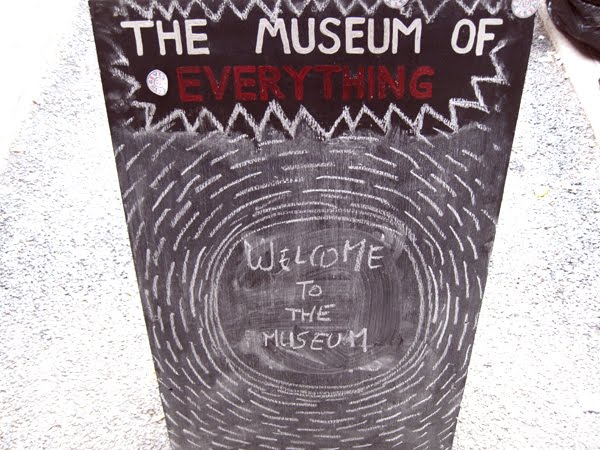 THE MUSEUM OF
EVERYTHING
WELCOME
TO
THE
MUSEUM